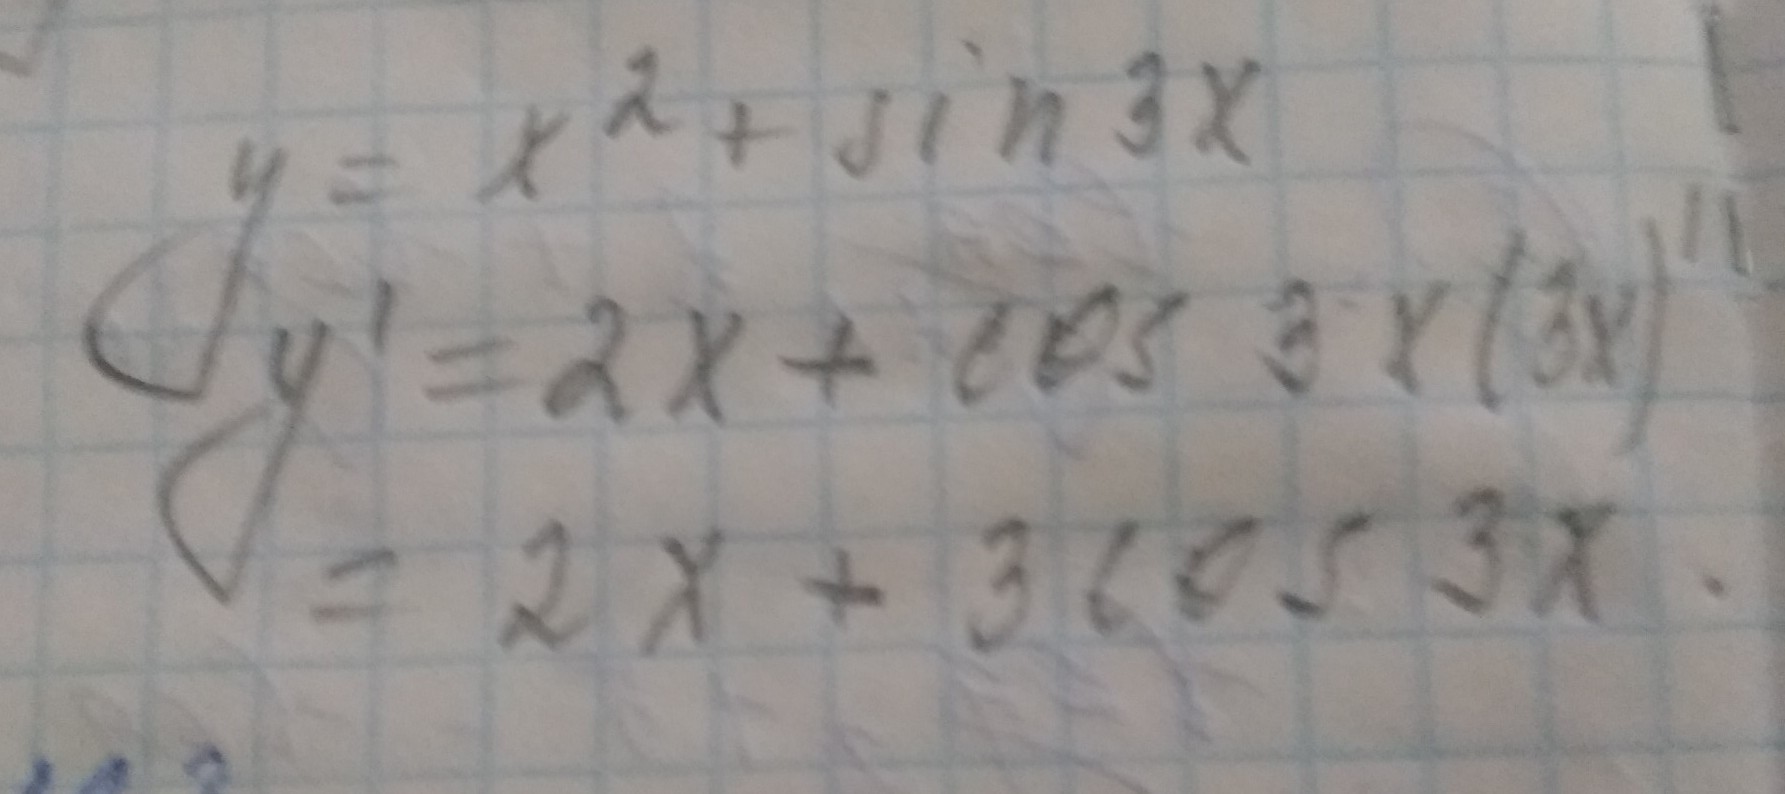 y = x² + sin 3x
y' = 2x + cos 3x (3x)''
= 2x + 3 cos 3x.